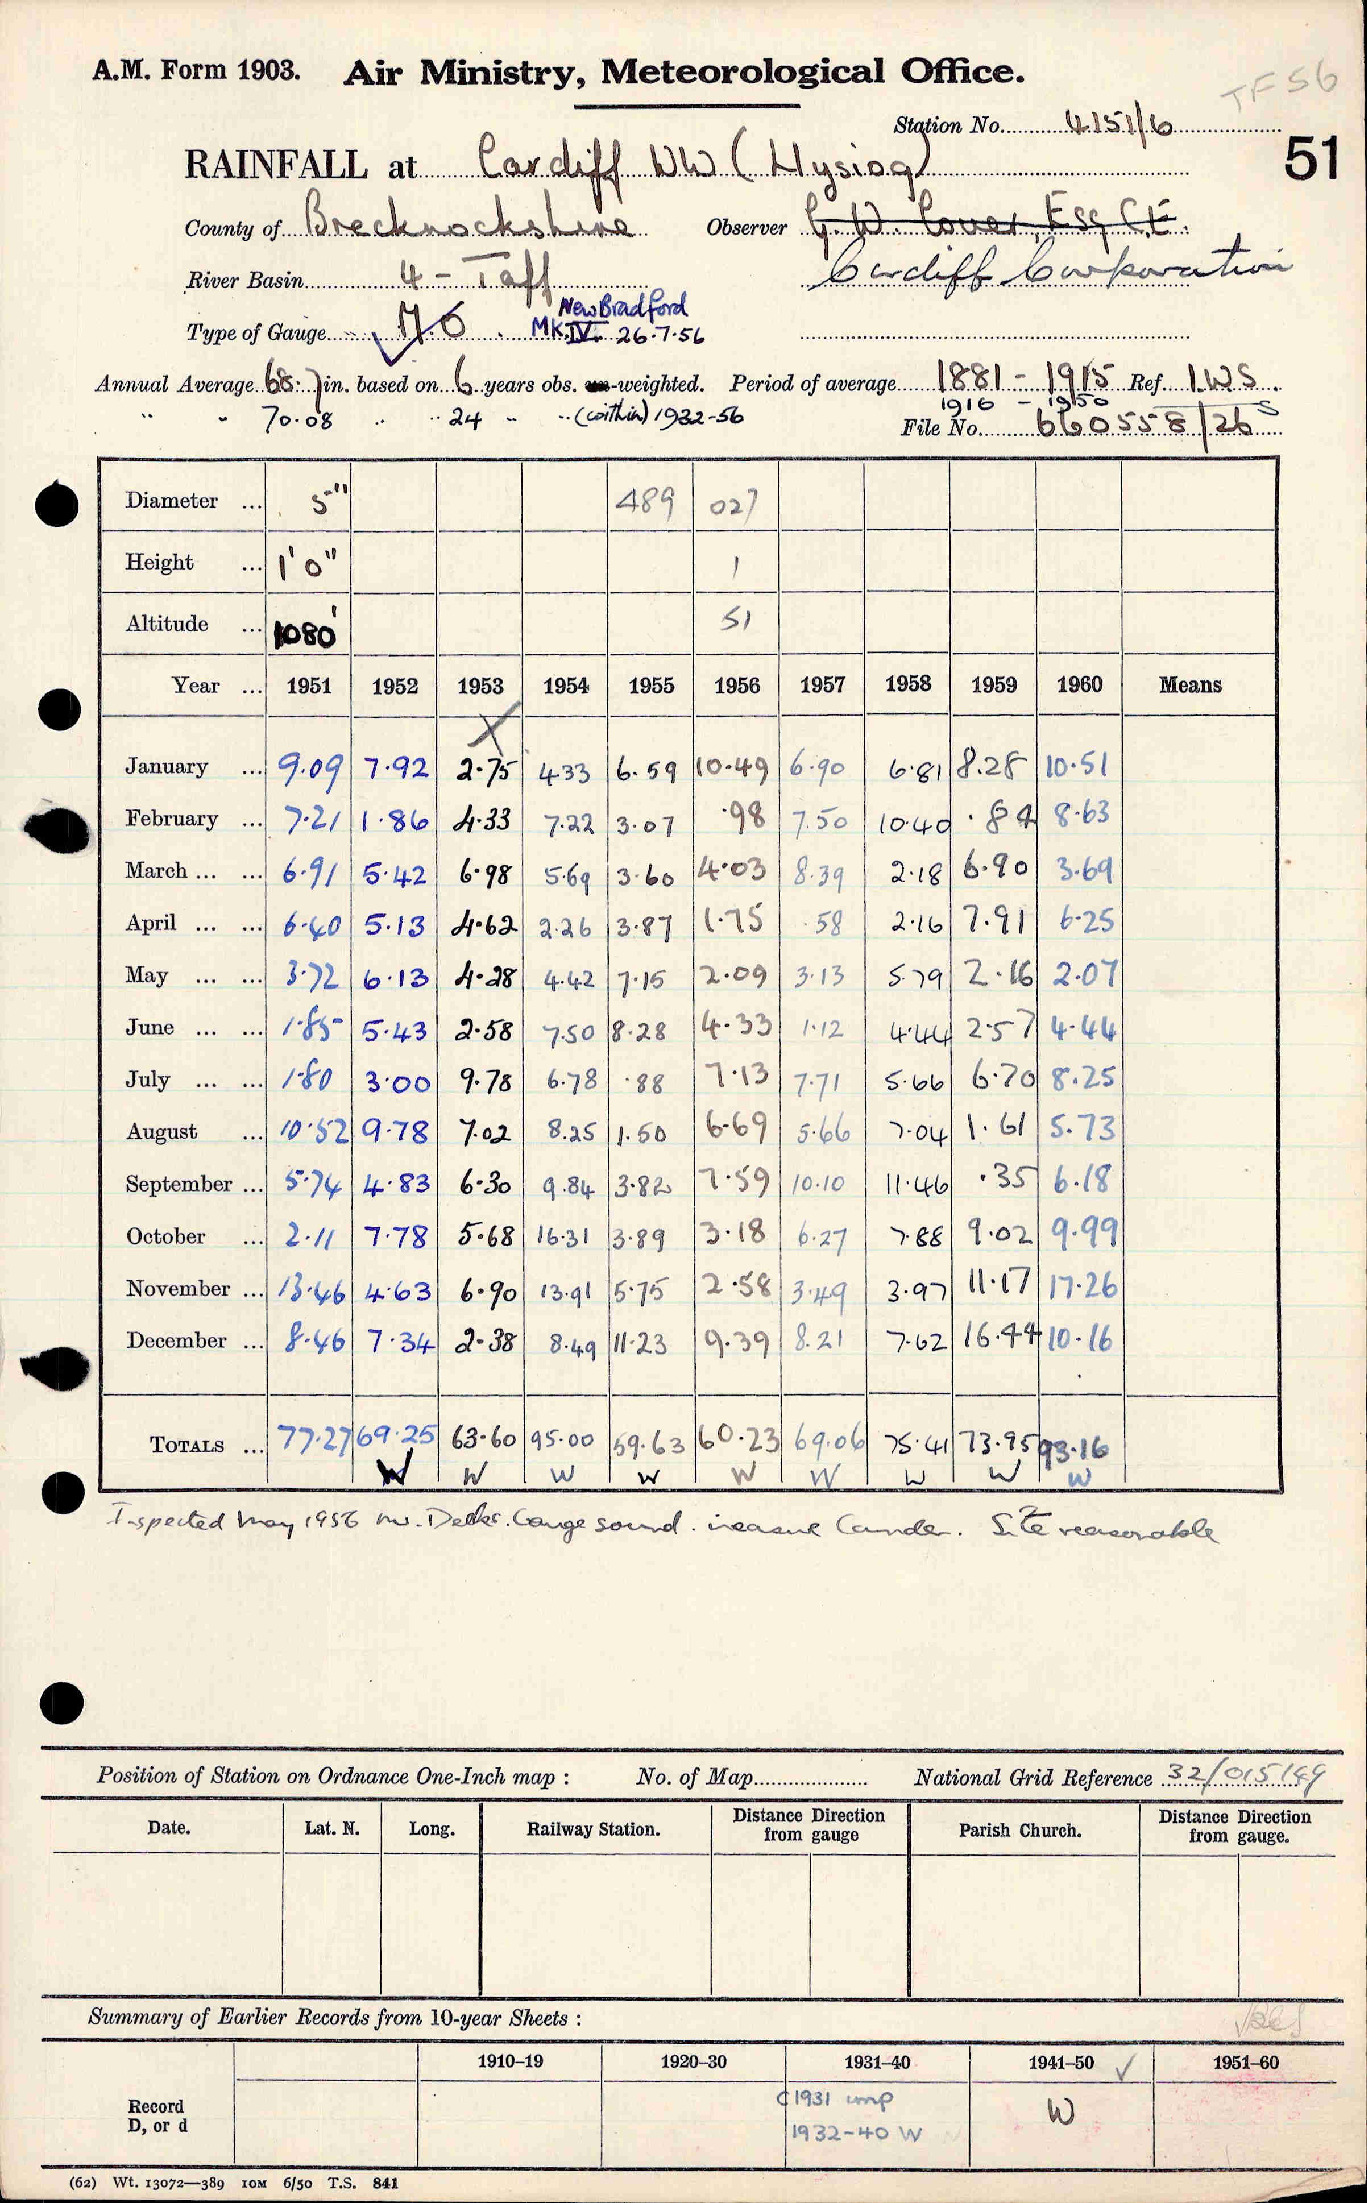 TF 56
A.M. Form 1903. Air Ministry, Meteorological Office.
Station No. 4151/6
51
RAINFALL at Cardiff WW (Llysiog)
County of Brecknockshire Observer G. W. Cover, Esq C.E.
River Basin 4 - Taff Cardiff Corporation
New Bradford
Type of Gauge M.O. MK.IV. 26.7.56
Annual Average 68.7 in. based on 6 years obs. un-weighted. Period of average 1881 - 1915 Ref I.W.S.
" " 70.08 " " 24 " " (within) 1932-56 1916 - 1950 S
File No. 660558/26
Diameter ... 5" 489 027
Height ... 1' 0" 1
Altitude ... 1080' 51
Year ... 1951 1952 1953 1954 1955 1956 1957 1958 1959 1960 Means
X
January ... 9.09 7.92 2.75 4.33 6.59 10.49 6.90 6.81 8.28 10.51
February ... 7.21 1.86 4.33 7.22 3.07 .98 7.50 10.40 .84 8.63
March ... ... 6.91 5.42 6.98 5.69 3.60 4.03 8.39 2.18 6.90 3.69
April ... ... 6.40 5.13 4.62 2.26 3.87 1.75 .58 2.16 7.91 6.25
May ... ... 3.72 6.13 4.28 4.42 7.15 2.09 3.13 5.79 2.16 2.07
June ... ... 1.85 5.43 2.58 7.50 8.28 4.33 1.12 4.44 2.57 4.44
July ... ... 1.80 3.00 9.78 6.78 .88 7.13 7.71 5.66 6.70 8.25
August ... 10.52 9.78 7.02 8.25 1.50 6.69 5.66 7.04 1.61 5.73
September ... 5.74 4.83 6.30 9.84 3.82 7.59 10.10 11.46 .35 6.18
October ... 2.11 7.78 5.68 16.31 3.89 3.18 6.27 7.88 9.02 9.99
November ... 13.46 4.63 6.90 13.91 5.75 2.58 3.49 3.97 11.17 17.26
December ... 8.46 7.34 2.38 8.49 11.23 9.39 8.21 7.62 16.44 10.16
TOTALS ... 77.27 69.25 63.60 95.00 59.63 60.23 69.06 75.41 73.95 93.16
W W W W W W W W W
Inspected May 1956 Gauge sound. measure Camden. Site reasonable
Position of Station on Ordnance One-Inch map : No. of Map National Grid Reference 32/015149
Date. Lat. N. Long. Railway Station. Distance Direction from gauge Parish Church. Distance Direction from gauge.
Summary of Earlier Records from 10-year Sheets :
1910–19 1920–30 1931–40 1941–50 ✓ 1951–60
Record D, or d C1931 imp W
1932-40 W
(62) Wt. 13072—389 10M 6/50 T.S. 841